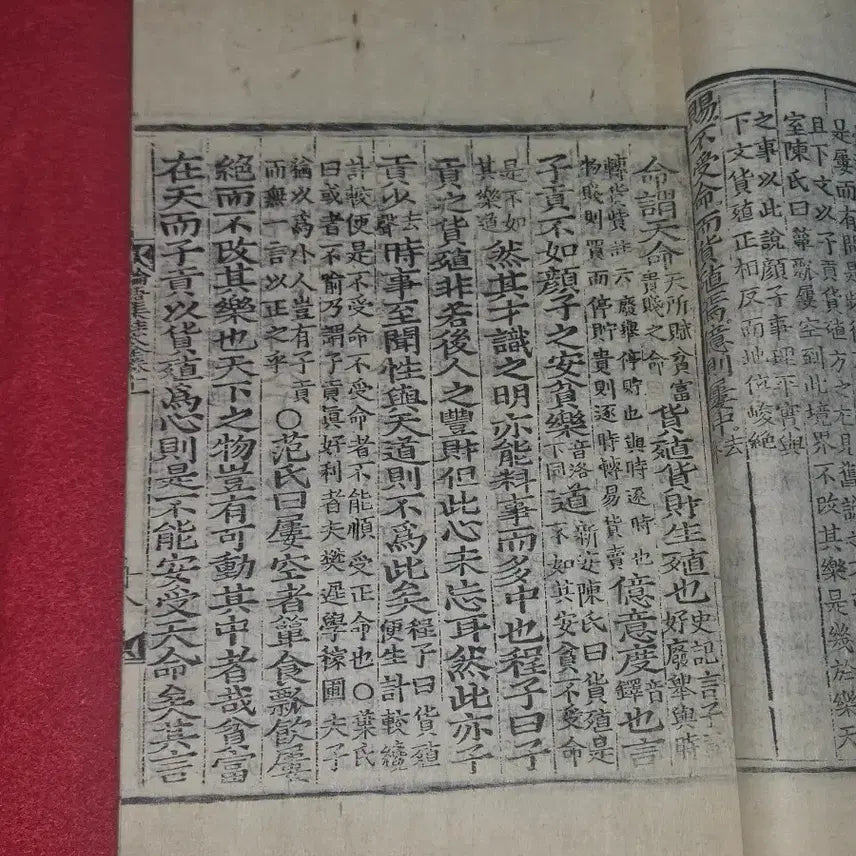 是屢而有間是
且下文以子貢貨殖方之尤見舊說
室陳氏曰簞瓢屢空到此境界不改其樂是幾於樂天
之事以此說顏子事理平實與
下文貨殖正相反而地位峻絶
賜不受命而貨殖焉億則屢中去
命謂天命天所賦貧富貴賤之命貨殖貨財生殖也史記言子好廢舉與時
轉貨貲註云廢舉停貯也與時逐時也物賤則買而停貯貴則逐時轉易貨賣億意度音鐸也言
子貢不如顏子之安貧樂音洛下同道新安陳氏曰貨殖是不如其安貧不受命
是不如其樂道然其才識之明亦能料事而多中也程子曰子
貢之貨殖非若後人之豐財但此心未忘耳然此亦子
貢少去聲時事至聞性與天道則不爲此矣程子曰貨殖便生計較纔
計較便是不受命不受命者不能順受正命也○葉氏曰或者不喻乃謂子貢眞好利者夫樊遲學稼圃夫子
猶以爲小人豈有子貢而無一言以正之乎○范氏曰屢空者簞食瓢飲屢
絶而不改其樂也天下之物豈有可動其中者哉貧富
在天而子貢以貨殖爲心則是不能安受天命矣其言
論語集註大全卷十一
十八